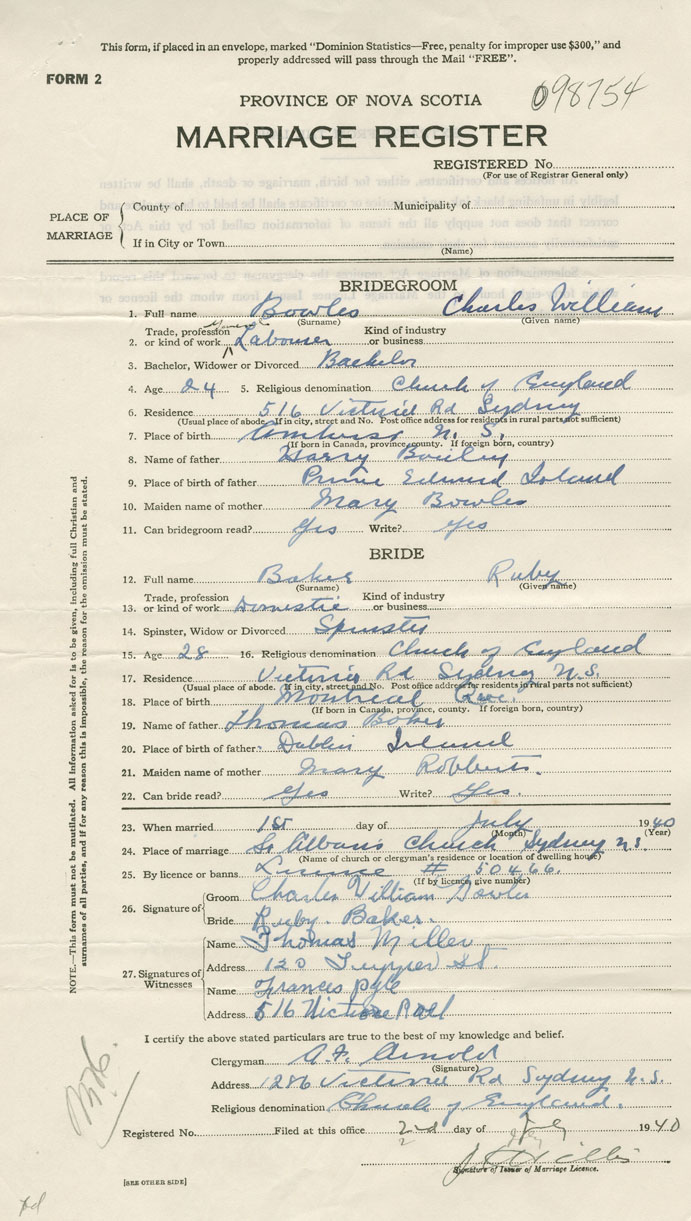 This form, if placed in an envelope, marked "Dominion Statistics—Free, penalty for improper use $300," and
properly addressed will pass through the Mail "FREE".
FORM 2
098754
PROVINCE OF NOVA SCOTIA
MARRIAGE REGISTER
REGISTERED No.
(For use of Registrar General only)
PLACE OF MARRIAGE
County of Municipality of
If in City or Town
(Name)
BRIDEGROOM
1. Full name Bowles Charles William
(Surname) (Given name)
2. Trade, profession or kind of work Labourer Kind of industry or business
3. Bachelor, Widower or Divorced Bachelor
4. Age 24 5. Religious denomination Church of England
6. Residence 516 Victoria Rd Sydney
(Usual place of abode. If in city, street and No. Post office address for residents in rural parts not sufficient)
7. Place of birth Amherst N. S.
(If born in Canada, province, county. If foreign born, country)
8. Name of father Harry
9. Place of birth of father Prince Edward Island
10. Maiden name of mother Mary Bowles
11. Can bridegroom read? Yes Write? Yes
BRIDE
12. Full name Baker Ruby
(Surname) (Given name)
13. Trade, profession or kind of work Domestic Kind of industry or business
14. Spinster, Widow or Divorced Spinster
15. Age 28 16. Religious denomination Church of England
17. Residence Victoria Rd Sydney N.S.
(Usual place of abode. If in city, street and No. Post office address for residents in rural parts not sufficient)
18. Place of birth Montreal Que.
(If born in Canada, province, county. If foreign born, country)
19. Name of father Thomas Baker
20. Place of birth of father Dublin Ireland
21. Maiden name of mother Mary Robberts.
22. Can bride read? Yes Write? Yes.
23. When married 1st day of July 1940
(Month) (Year)
24. Place of marriage St Albans Church Sydney N.S.
(Name of church or clergyman's residence or location of dwelling house)
25. By licence or banns License # 50466.
(If by licence, give number)
26. Signature of Groom Charles William Bowles
Bride Ruby. Baker.
27. Signatures of Witnesses
Name Thomas Miller
Address 120 Tupper St.
Name Frances Pyle
Address 516 Victoria Road
I certify the above stated particulars are true to the best of my knowledge and belief.
Clergyman A.F. Arnold
(Signature)
Address 1286 Victoria Rd Sydney N.S.
Religious denomination Church of England.
Registered No. Filed at this office 2nd day of July 1940
Signature of Issuer of Marriage Licence.
[SEE OTHER SIDE]
NOTE.—This form must not be mutilated. All information asked for is to be given, including full Christian and
surnames of all parties, and if for any reason this is impossible, the reason for the omission must be stated.